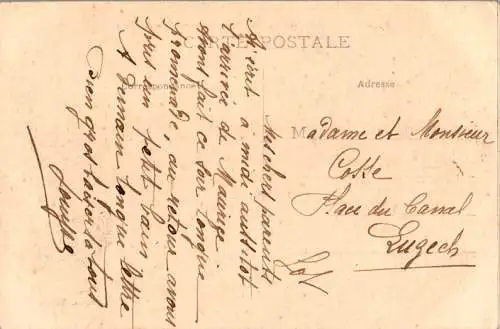 CARTE POSTALE
Correspondance
Adresse
Mes chers parents
à midi aussitôt
l'arrivée de Maurice
avons fait ce soir longue
promenade, au retour avons
pris un petit bain
A demain longue lettre
Bien gros baisers à tous
Madame et Monsieur
Cosse
Place du Canal
Luzech
Lot